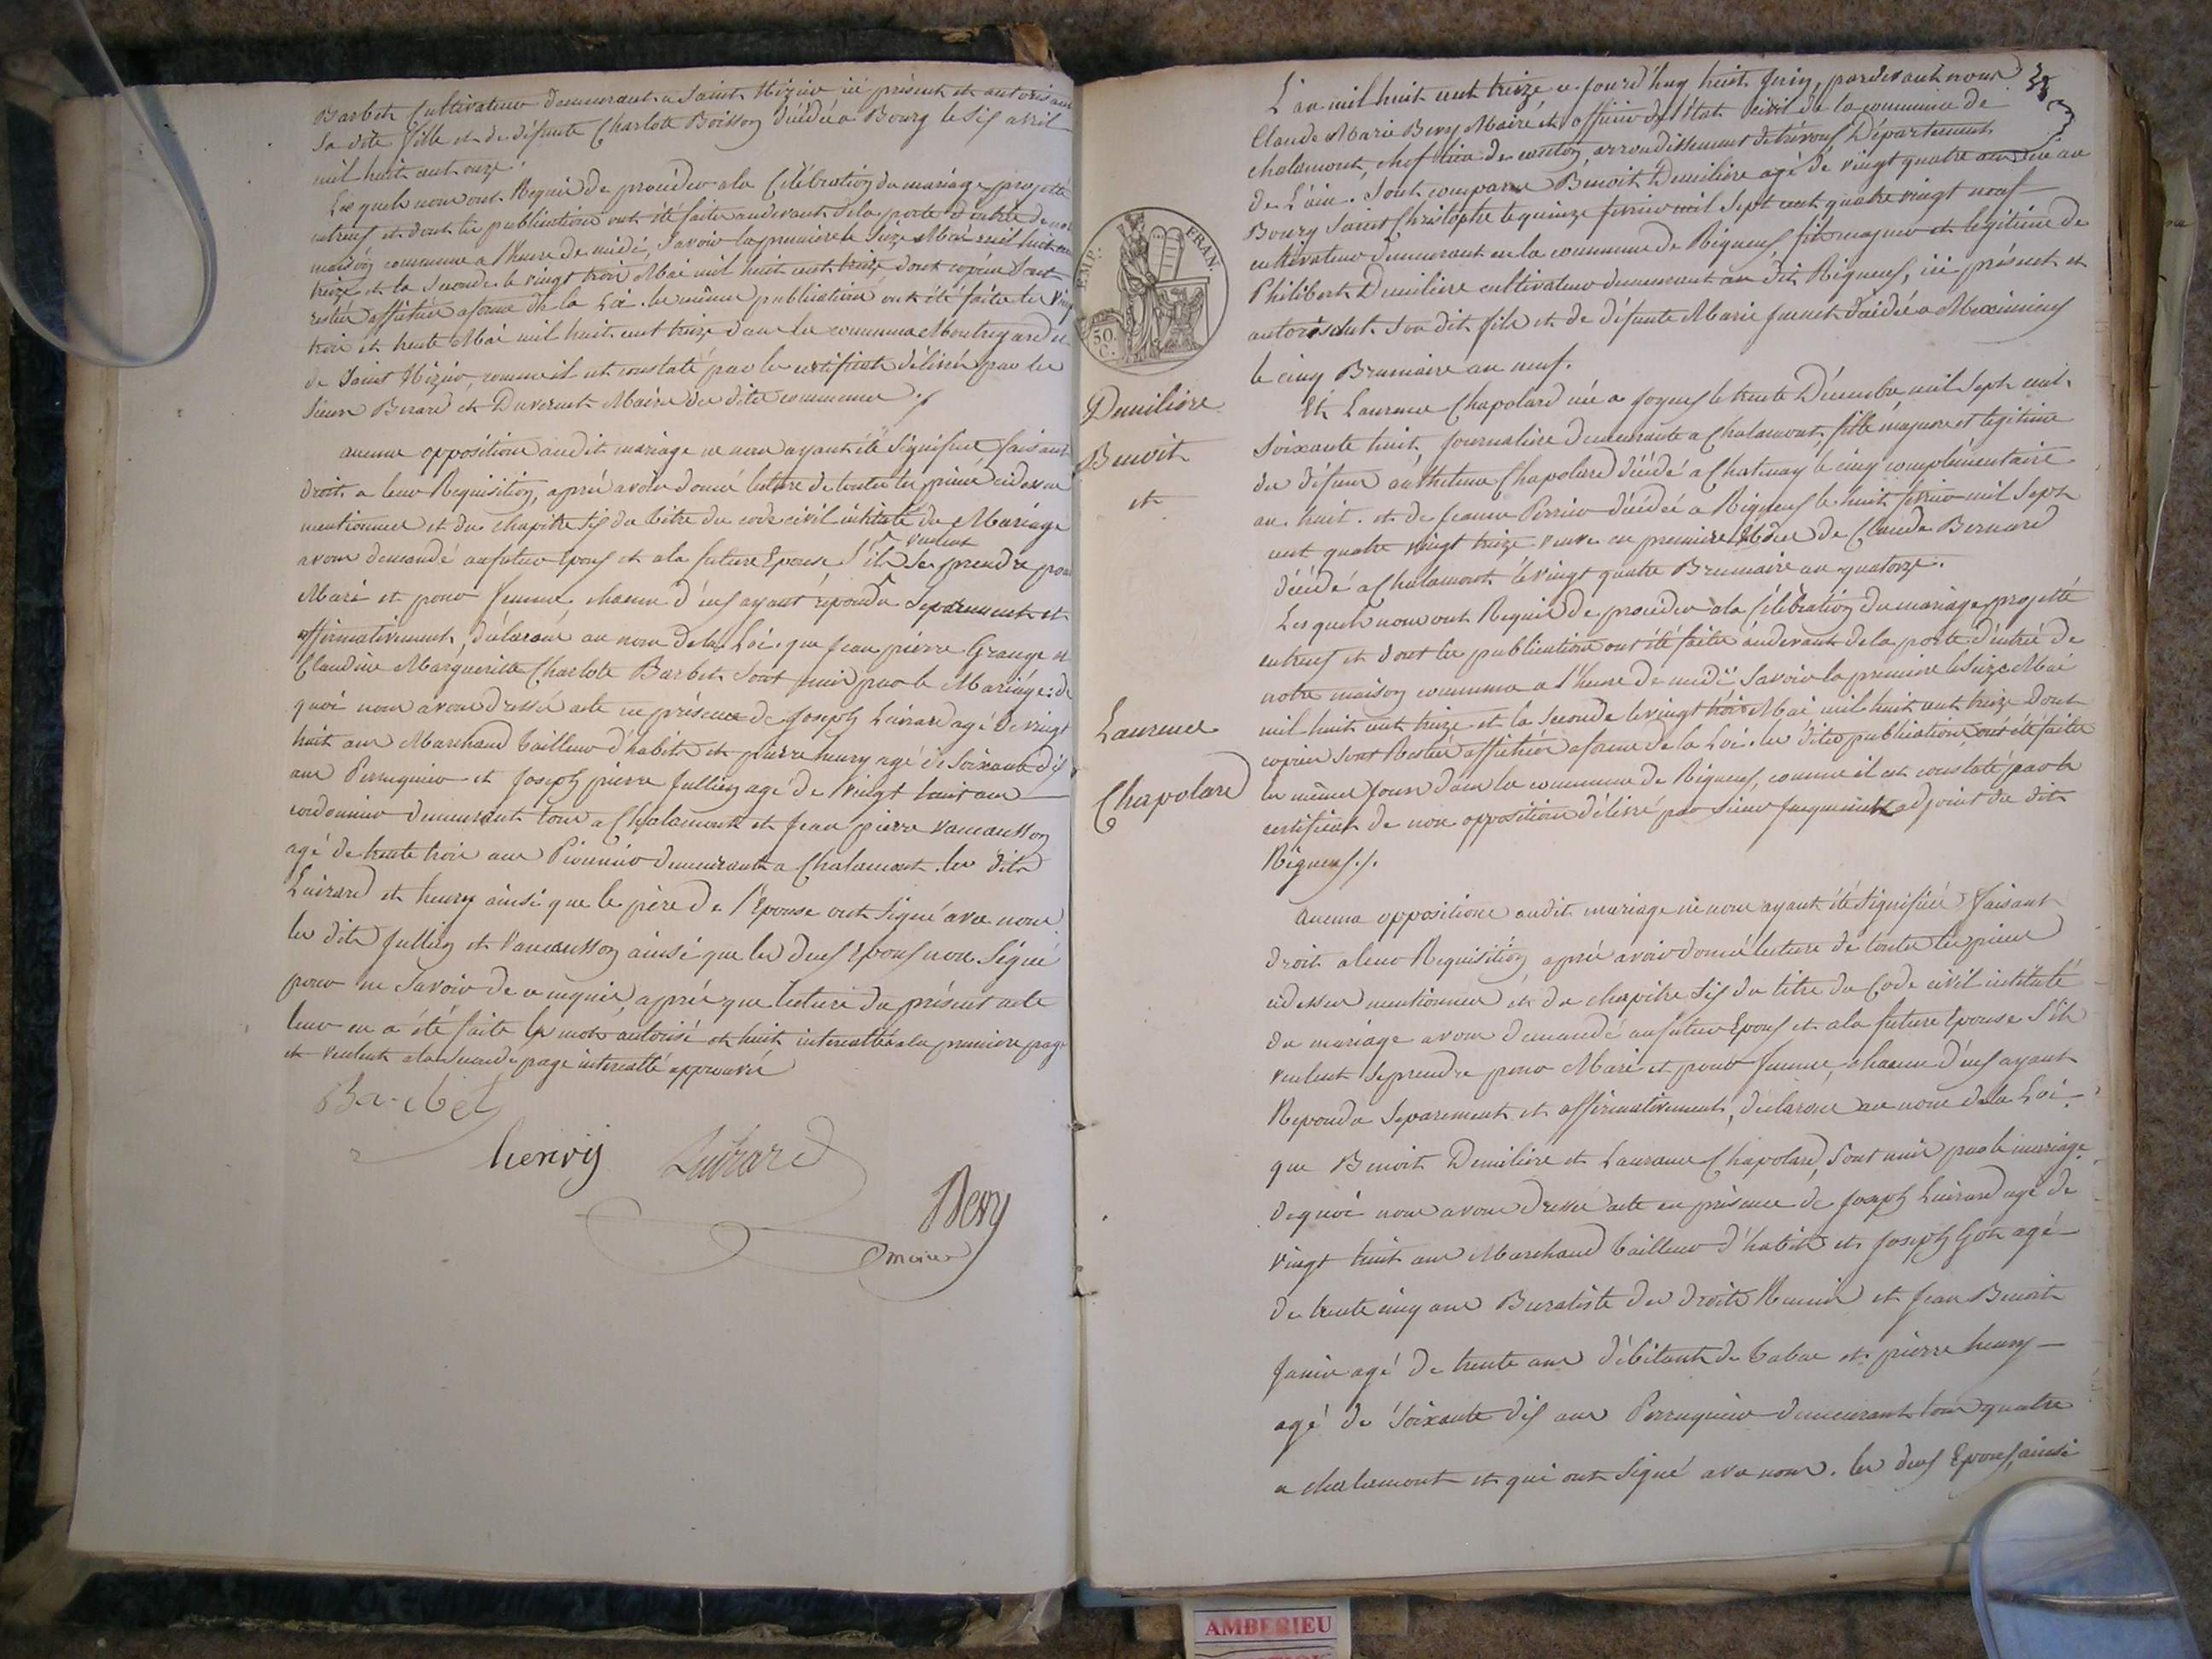 Barbet Cultivateur demeurant a Saint Nizier ici présent et autorisant
Sa dite fille et de défunte Charlote Boisson décédée a Bourg le Six avril
mil huit cent onze.
Les quels nous ont Requis de procéder a la Célébration du mariage projetté
entreux et dont les publications ont été faites audevant de la porte d'entrée de notre
maison commune a l'heure de midi, Savoir la premiere le Seize Mai mil huit cent
treize et la Seconde le vingt trois Mai mil huit cent treize dont copies Sont
restées affichées aforme de la Loi. les mêmes publications ont été faites les vingt
trois et trente Mai mil huit cent treize dans les communes et
de Saint Nizier, comme il est constaté par les certificats délivrés par les
Sieurs Berard et Duvernet Maires des dites communes ./.
aucune opposition audit mariage ne nous ayant été Signifiée, faisant
droit a leur Requisition, après avoir donné lecture de toutes les pieces cidessus
mentionnées et du chapitre Six du titre du code civil intitulé du Mariage
avons demandé aufutur Epoux et ala future Epouse S'ils veulent se prendre pour
Mari et pour femme, chacun d'eux ayant répondu Séparement et
affirmativement, déclarons au nom de la Loi que Jean pierre Grange et
Claudine Margueritte Charlote Barbet Sont unis par le Mariage: de
quoi nous avons dressé acte en présence de Joseph Luirard agé de vingt
huit ans Marchand tailleur d'habits et pierre henry agé de Soixante dix
ans Perruquier et Joseph pierre Jullien agé de vingt huit ans
cordonnier demeurant tous a Chalamont et Jean pierre Vaucansson
agé de trente trois ans demeurant a Chalamont. les dits
Luirard et henry ainsi que le père de l'Epouse ont Signé avec nous
les dits Jullien et Vaucansson ainsi que les deux Epoux non Signé
pour ne Savoir de ce enquis, après que lecture du présent acte
leur en a été faite les mots autorisé et huit intercallés a la premiere page
et veulent a la Seconde page intercallé approuvés
Barbet
henry Luirard
Bevy
maire
38
L'an mil huit cent treize ce jourd'huy huit Juin, pardevant nous
Claude Marie Bevy Maire et officier de l'état civil de la commune de
chalamont, chef lieu de canton, arrondissement de trévoux Département
de L'ain. Sont comparus Benoit Dumiliere agé de vingt quatre ans né au
Bourg Saint Christophe le quinze fevrier mil Sept cent quatre vingt neuf
cultivateur demeurant en la commune de Rigneux fils majeur et légitime de
Philibert Dumiliere cultivateur demeurant au dit Rigneux, ici présent et
autorisant Son dit fils et de défunte Marie décédée a Meximieux
le cinq Brumaire an neuf.
Et Laurence Chapolard née a Joyeux le trente Décembre mil Sept cent
Soixante huit, Journaliere demeurante a Chalamont, fille majeure et legitime
de défunt Chapolard décédé a Chatenay le cinq complémentaire
an huit. et de Jeanne Perrier décédée a Rigneux le huit fevrier mil Sept
cent quatre vingt treize veuve en premiere Nôces de Claude Bernard
décédé a Chalamont le vingt quatre Brumaire an quatorze.
Les quels nous ont Requis de procéder a la Célébration du mariage projetté
entreux et dont les publications ont été faites audevant de la porte d'entrée de
notre maison commune a l'heure de midi Savoir la premiere le Seize Mai
mil huit cent treize et la Seconde le vingt trois Mai mil huit cent treize dont
copies Sont Restées affichées aforme de la Loi. les dites publications ont été faites
les mêmes jours dans la commune de Rigneux, comme il est constaté par le
certificat de non opposition délivré par Sieur adjoint du dit
Rigneux ./.
Dumiliere
Benoit
et
Laurence
Chapolard
EMP. FRAN.
50 C.
aucune opposition audit mariage ne nous ayant été Signifiée faisant
droit a leur Requisition, après avoir donné lecture de toutes les pieces
cidessus mentionnées et du chapitre Six du titre du Code civil intitulé
du mariage avons demandé aufutur Epoux et ala future Epouse S'ils
veulent Se prendre pour Mari et pour femme, chacun d'eux ayant
Repondu Séparement et affirmativement, déclarons au nom de la Loi
que Benoit Dumiliere et Laurance Chapolard, Sont unis par le mariage
dequoi nous avons dressé acte en présence de Joseph Luirard agé de
vingt huit ans Marchand tailleur d'habits et Joseph Gon agé
de trente cinq ans Buraliste des droits Réunis et Jean Benoit
Janin agé de trente ans débitant de tabac et pierre henry
agé de Soixante dix ans Perruquier demeurants tous quatre
a chalamont et qui ont Signé avec nous. les deux Epoux, ainsi
AMBERIEU